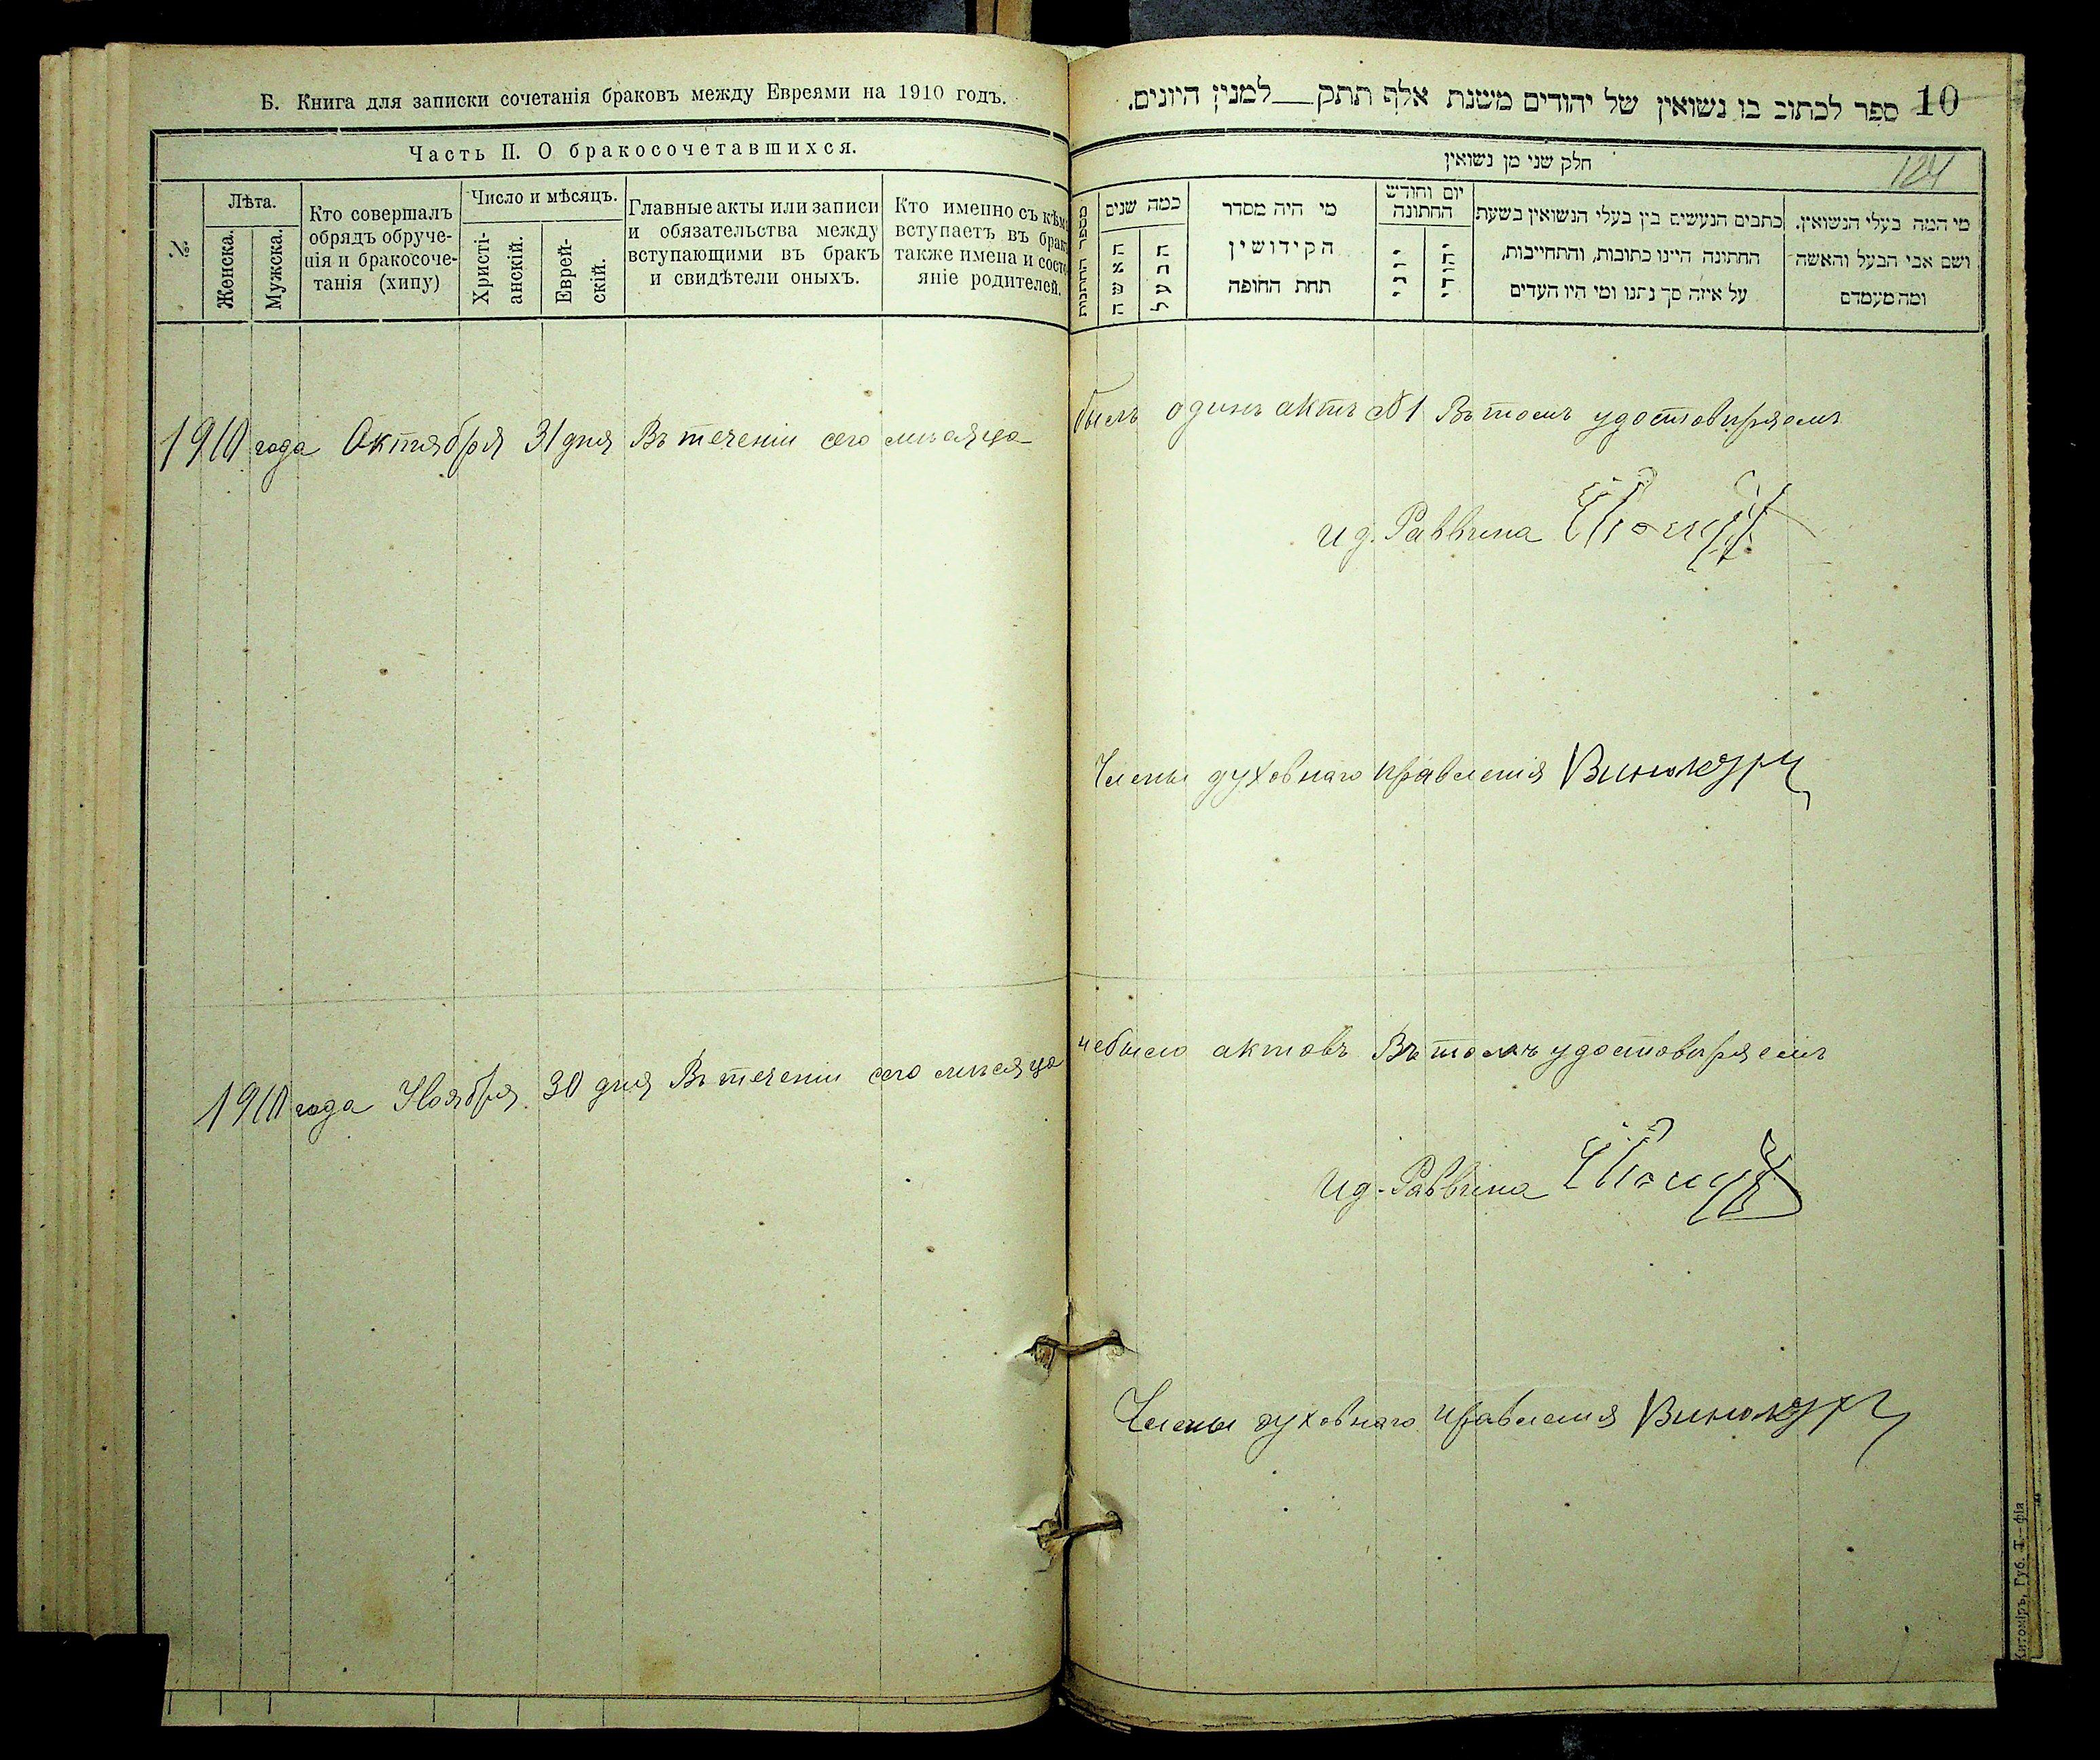 Б. Книга для записки сочетанія браковъ между Евреями на 1910 годъ.
Часть II. О бракосочетавшихся.
№
Лѣта.
Женска.
Мужска.
Кто совершалъ
обрядъ обруче-
нія и бракосоче-
танія (хипу)
Число и мѣсяцъ.
Христі-
анскій.
Еврей-
скій.
Главные акты или записи
и обязательства между
вступающими въ бракъ
и свидѣтели оныхъ.
Кто именно съ кѣмъ
вступаетъ въ бракъ
также имена и состо-
яніе родителей.
1910 года Октября 31 дня Въ теченіи сего мѣсяца
1910 года Ноября 30 дня Въ теченіи сего мѣсяца
10 ספר לכתוב בו נשואין של יהודים משנת אלף תתק__למנין היונים.
124
חלק שני מן נשואין
מספר החתונות
כמה שנים
האשה
הבעל
מי היה מסדר
הקידושין
תחת החופה
יום וחודש
החתונה
יוני
יהודי
כתבים הנעשים בין בעלי הנשואין בשעת
החתונה היינו כתובות, והתחייבות,
על איזה סך נתנו ומי היו העדים
מי המה בעלי הנשואין.
ושם אבי הבעל והאשה
ומה מעמדם
былъ одинъ актъ №1 Въ томъ удостовѣряемъ
И д. Раввина
Члены духовнаго правленія Винокуръ
небыло актовъ Въ томъ удостовѣряемъ
И д. Раввина
Члены духовнаго правленія Винокуръ
Житоміръ, Губ. Т—фія